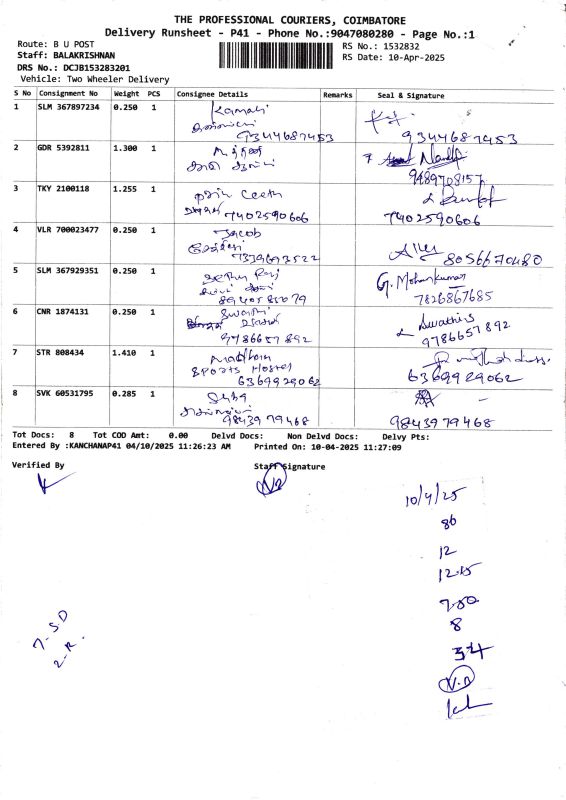 THE PROFESSIONAL COURIERS, COIMBATORE
Delivery Runsheet - P41 - Phone No.:9047080280 - Page No.:1
Route: B U POST
RS No.: 1532832
Staff: BALAKRISHNAN
RS Date: 10-Apr-2025
DRS No.: DCJB153283201
Vehicle: Two Wheeler Delivery
S No Consignment No Weight PCS Consignee Details Remarks Seal & Signature
1 SLM 367897234 0.250 1 Kamali
9344687453 9344687453
2 GDR 5392811 1.300 1
9489708157
3 TKY 2100118 1.255 1
7402590606 7402590606
4 VLR 700023477 0.250 1 Jacob
7339693522 8056670480
5 SLM 367929351 0.250 1 G. Mohankumar
8940585079 7826867685
6 CNR 1874131 0.250 1 Swathi Swathi S
9786657892 9786657892
7 STR 808434 1.410 1
Sports Hostel
6369929062 6369929062
8 SVK 60531795 0.285 1
9843979468 9843979468
Tot Docs: 8 Tot COD Amt: 0.00 Delvd Docs: Non Delvd Docs: Delvy Pts:
Entered By :KANCHANAP41 04/10/2025 11:26:23 AM Printed On: 10-04-2025 11:27:09
Verified By Staff Signature
10/4/25
86
12
12.15
7.50
8
7-SD
2-R.